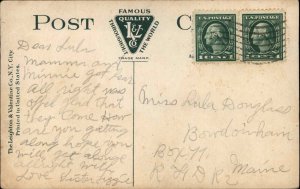 POST C
FAMOUS
QUALITY
L&V
THROUGHOUT THE WORLD
TRADE MARK.
U.S. POSTAGE
1 CENT 1
U.S. POSTAGE
1 CENT 1
The Leighton & Valentine Co., N.Y. City.
Printed in United States.
Dear Lula
Mamma and
Minnie got here
All right was
glad that
they Come How
are you getting
along hope you
will get along
Love Sister Lizzie
Miss Lula Douglass
Bowdoinham
Box 71
R F D R 2
Maine